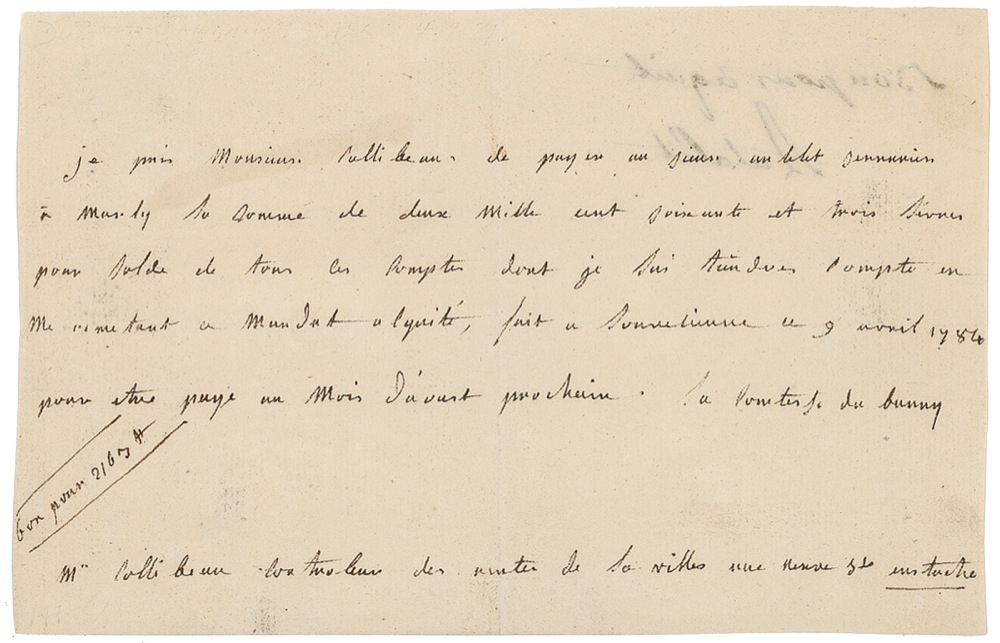 je prie Monsieur Collibeau de payer au sieur serrurier
a Marly la somme de deux Mille cent soixante et trois livres
pour solde de tous ces comptes dont je lui tiendrer compte en
Me remetant ce Mandat aquité, fait a Louvetienne ce 9 avril 1784
pour etre paye au Mois d'avust prochain . la Comtesse du barry
bon pour 2163 ₶
Mr Collibeau controleur des rentes de la villes rue neuve St eustache
Bon pour aquit